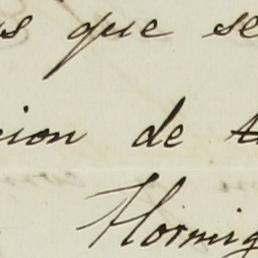 os que se
cion de t
Hormig